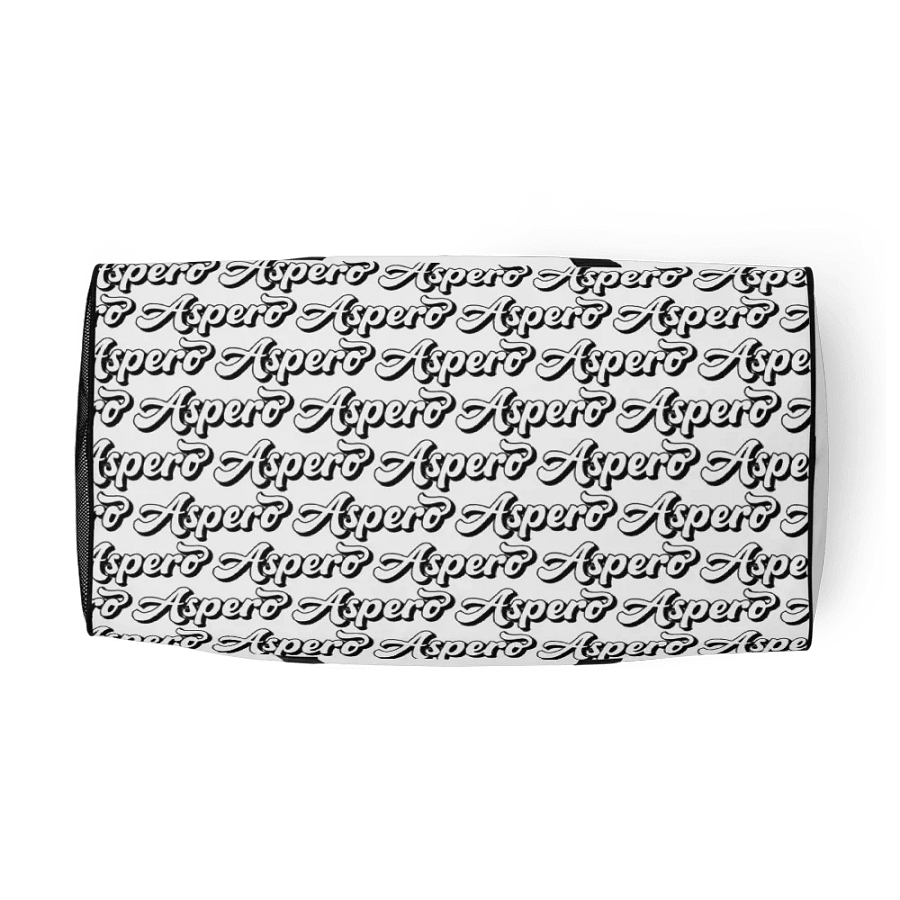 spero Aspero Aspero Aspero Aspe
ro Aspero Aspero Aspero Aspero A
spero Aspero Aspero Aspero Aspe
ro Aspero Aspero Aspero Aspero A
spero Aspero Aspero Aspero Aspe
ro Aspero Aspero Aspero Aspero A
spero Aspero Aspero Aspero Aspe
ro Aspero Aspero Aspero Aspero A
spero Aspero Aspero Aspero Aspe